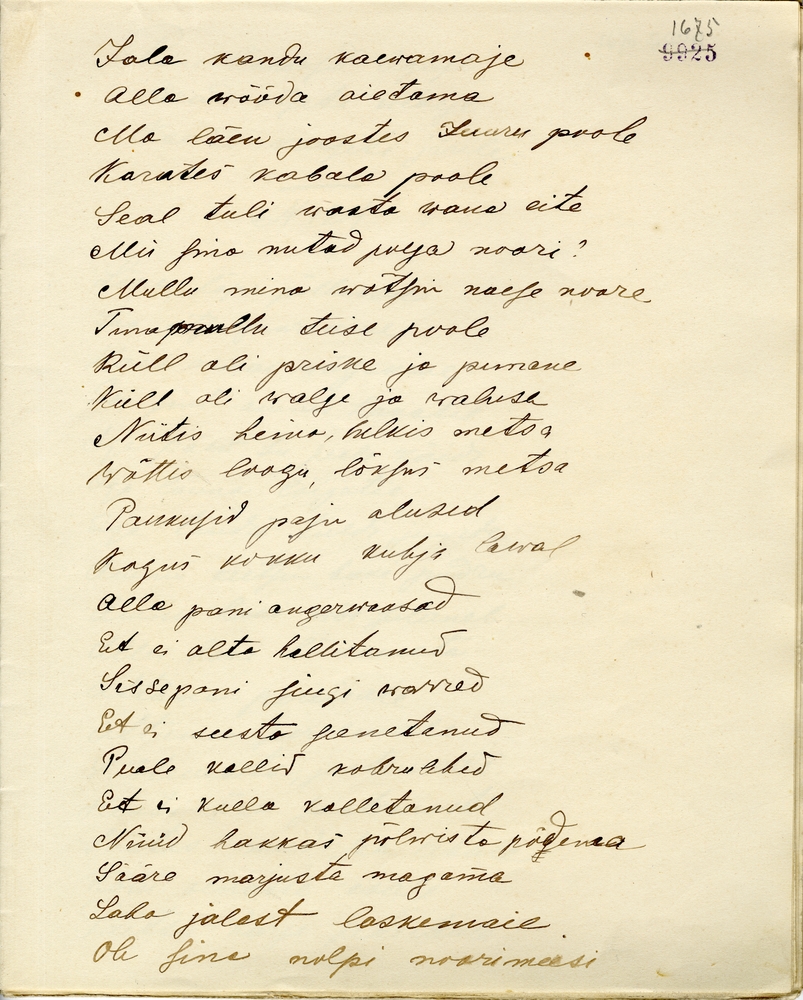 1675
9925
Jala kandu kaewamaje
Alla wööda aietama
Ma läen joostes Juuru poole
Karates kabala poole
Seal tuli wasta wana eite
Mis sina nutad poega noori?
Mullu mina wõtsin naese noore
Tuna mullu teise poole
Küll oli priske ja punane
Küll oli walge ja walusa
Niitis heina, hilkis metsa
Wõttis loogu, lõksus metsa
Paukusid paju alused
Kogus kokku kuhja lawal
Alla pani angerwaksad
Et ei alta hallitanud
Sisse pani singi warred
Et ei seesta
Peale kallid kobrulehed
Et ei kulla kolletanud
Nüüd hakkas põlwista põdema
Sääre marjusta magama
Laba jalast laskemaie
Oh sina nolpi noorimeesi